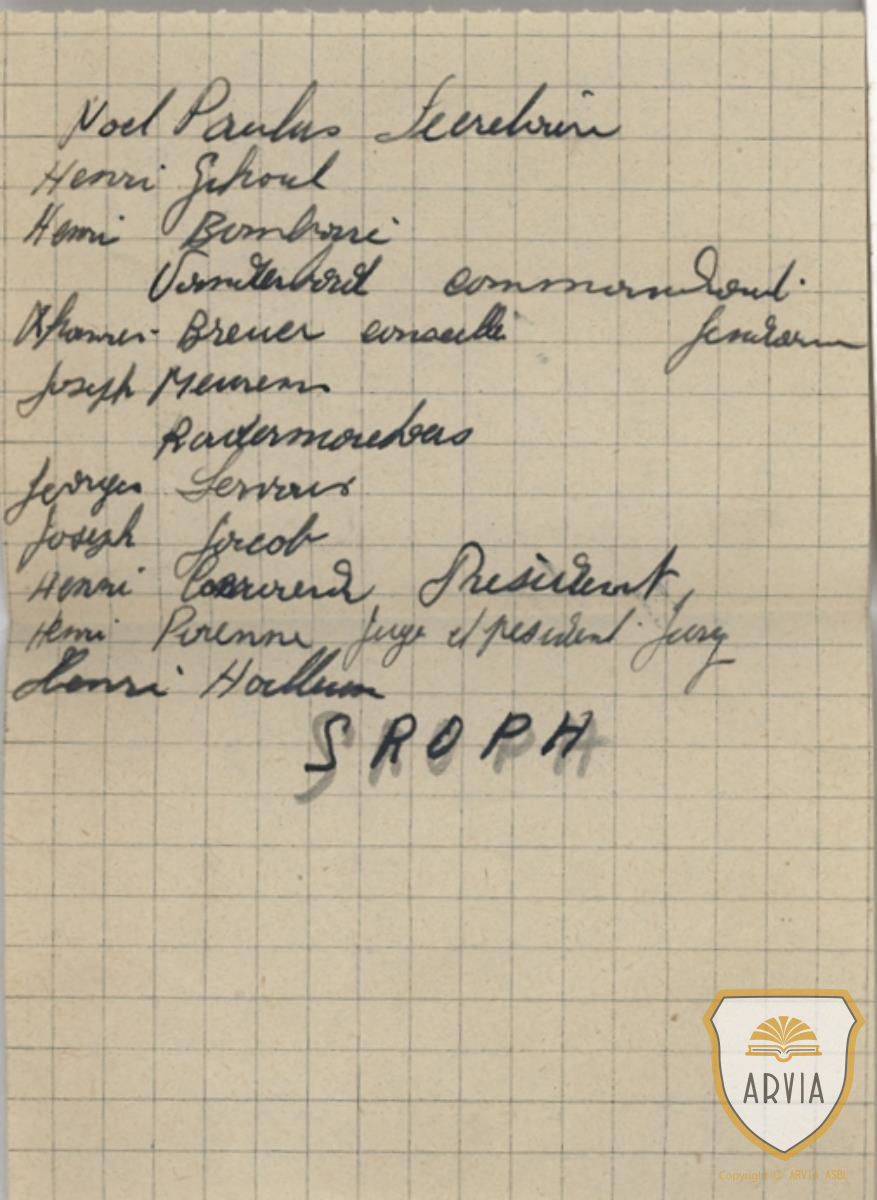 Noel Paulus Secretaire
Henri Gihoul
Henri
Vanderbord commandant
Breuer conseille Gendarm
Joseph Meurens
Radermaechers
Georges Servais
Joseph Jacob
Henri President
Henri Pirenne Juge et president Jury
Henri
SROPH
ARVIA
Copyright © ARVIA ASBL